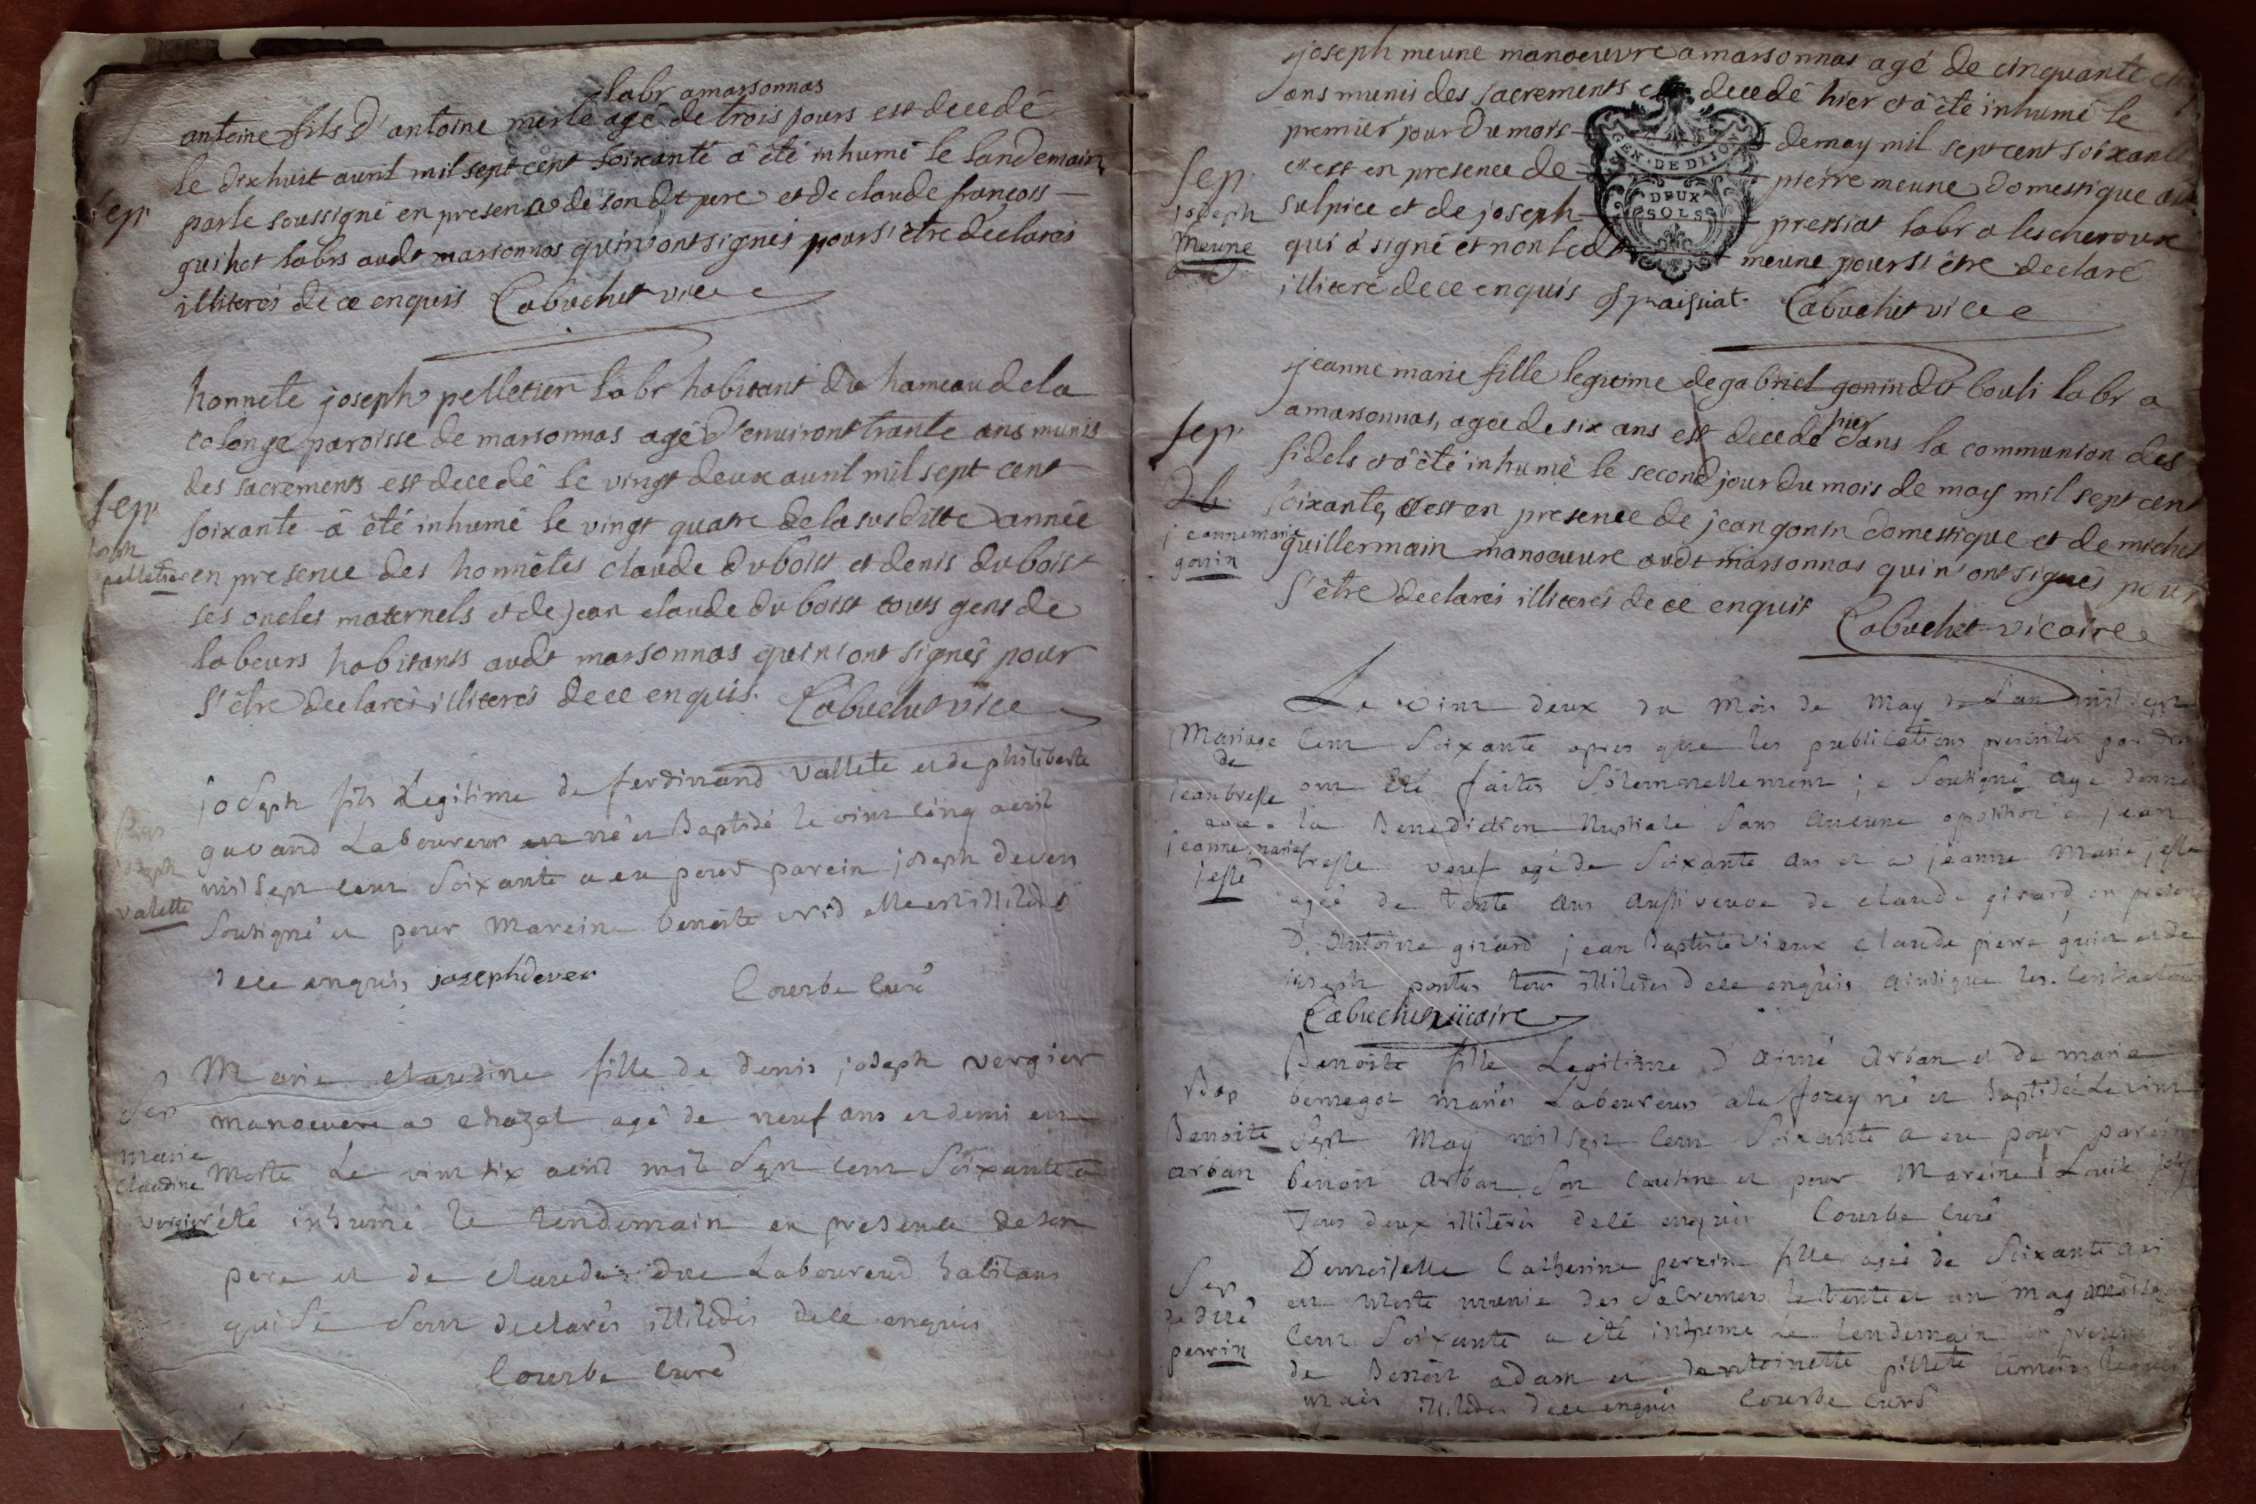 labr a marsonnas
antoine fils d'antoine merle agé de trois jours est decedé
le dixhuit avril mil sept cent soixante a été inhumé le landemain
sep.
par le soussigné en presence de son dt pere et de claude françois
guihot labrs audt marsonnas qui n'ont signés pour s'etre declarés
illiterés de ce enquis Cabuchet vice
honnete joseph pelletier labr habitant du hameau de la
colonge paroisse de marsonnas agé d'environt trante ans munis
des sacrements est decedé le vingt deux avril mil sept cent
sep.
soixante a été inhumé le vingt quatre de la susditte année
joseph
pelletier
en presence des honnêtes claude duboist et denis duboist
ses oncles maternels et de jean claude duboist touts gens de
labeurs habitants audt marsonnas qui n'ont signés pour
s'être declarés illiterés de ce enquis. Cabuchet vice
joseph fils Legitime de ferdinand vallete et de philiberte
guvand Laboureur est né et Baptisé le vint cinq avril
joseph
valette
mil sept cent soixante a eu pour parein joseph devers
soutigné et pour mareine benoite elle est illiteré
de ce enquis joseph dever Courbe curé
Marie claudine fille de denis joseph vergier
sep
manoeuvre a chazel agé de neuf ans et demi est
marie
claudine
vergier
morte Le vint six avril mil sept cent soixante a
été inhumé le lendemain en presence de son
pere et de claude duc Laboureurs habitans
qui se sont declarés illiterés de ce enquis
Courbe curé
joseph meune manoeuvre a marsonnas agé de cinquante
ans munis des sacrements est decedé hier et a été inhumé le
premier jour du mois de may mil sept cent soixante
GEN. DE DIJON
DEUX
SOLS
sep.
joseph
meune
et est en presence de pierre meune domestique au
sulpice et de joseph pressiat labr a lescheroux
qui a signé et non led meune pour s'être declaré
illiteré de ce enquis j praissiat Cabuchet vice
jeanne marie fille legitime de gabriel gonin dit bouli labr a
sep.
a marsonnas, agée de six ans est decedé hier dans la communion des
fidels et a été inhumé le second jour du mois de may mil sept cent
jeanne marie
gonin
soixante, et est en presence de jean gonin domestique et de michel
guillermain manoeuvre audt marsonnas qui n'ont signés pour
s'être declarés illiterés de ce enquis
Cabuchet vicaire
Le vint deux du mois de may de L'an mil sept
Mariage
de
jean bresse
avec
jeanne marie
jesse
cent soixante apres que les publications prescrites par droit
ont été faites solemnellement je soutigné aye donné
la Benediction Nuptiale sans aucune oposition a jean
bresse veuf agé de soixante ans et a jeanne marie jesse
agée de trente ans aussi veuve de claude girard en presence
D'antoine girard jean baptiste vieux claude pierre guiu et de
joseph pontus tous illiterés de ce enquis ainsi que les contractans
Cabuchet vicaire
Benoite fille Legitime d'aimé Arban et de marie
Bap
Benoite
arban
bernegoz mariés Laboureurs a la forey né et baptisée Le vint
sept may mil sept cent soixante a eu pour parein
benoit arban son cousin et pour Mareine Louise
tous deux illiterés de ce enquis Courbe curé
Demoiselle Catherine perrin fille agée de soixante ans
sep
perrin
est morte munie des sacremens le trente et un may
cent soixante a été inhumé Le lendemain en presence
de Benoit adam et d'antoinette pillete
mais illiterés de ce enquis Courbe curé